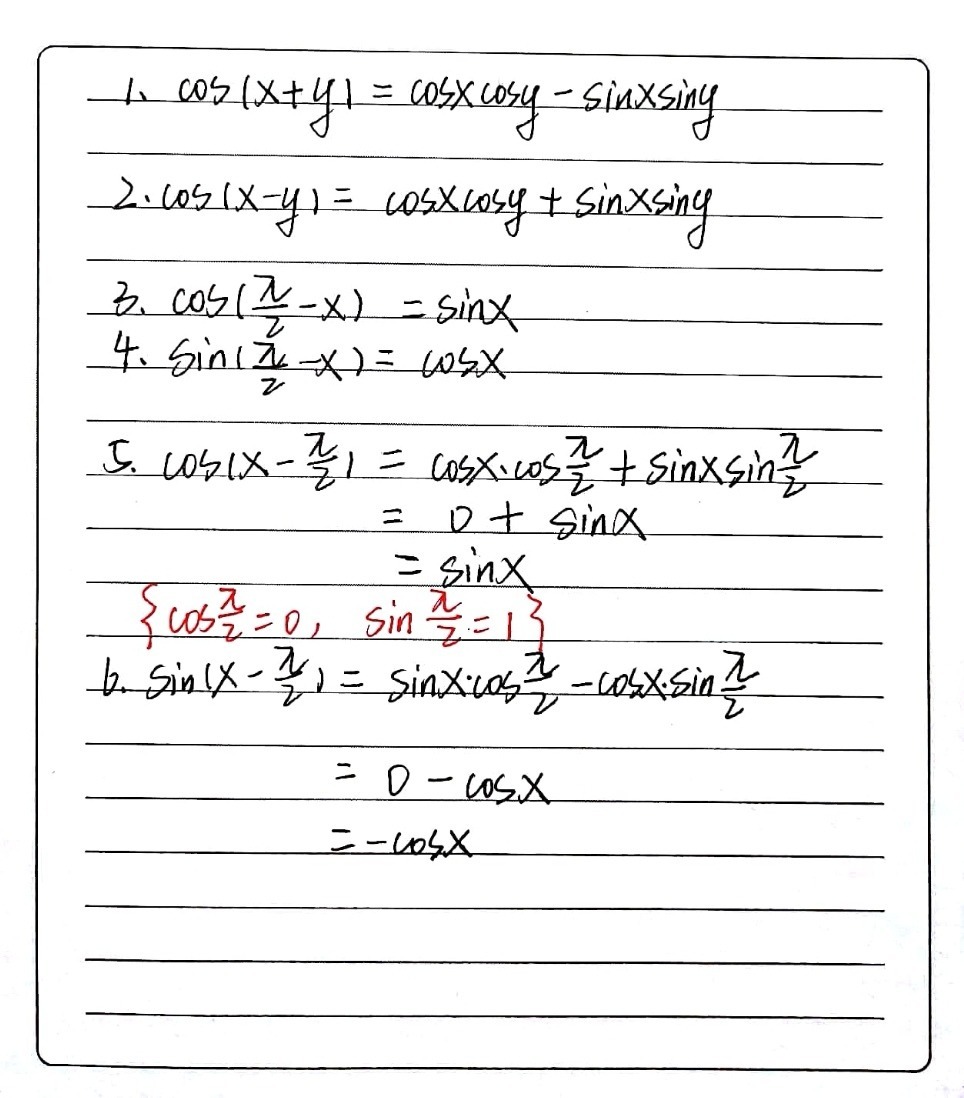 1. cos(x+y) = cosxcosy - sinxsiny
2. cos(x-y) = cosxcosy + sinxsiny
3. cos(π/2 - x) = sinx
4. sin(π/2 - x) = cosx
5. cos(x - π/2) = cosx·cos π/2 + sinxsin π/2
= 0 + sinx
= sinx
{cos π/2 = 0, sin π/2 = 1}
6. sin(x - π/2) = sinx·cos π/2 - cosx·sin π/2
= 0 - cosx
= -cosx